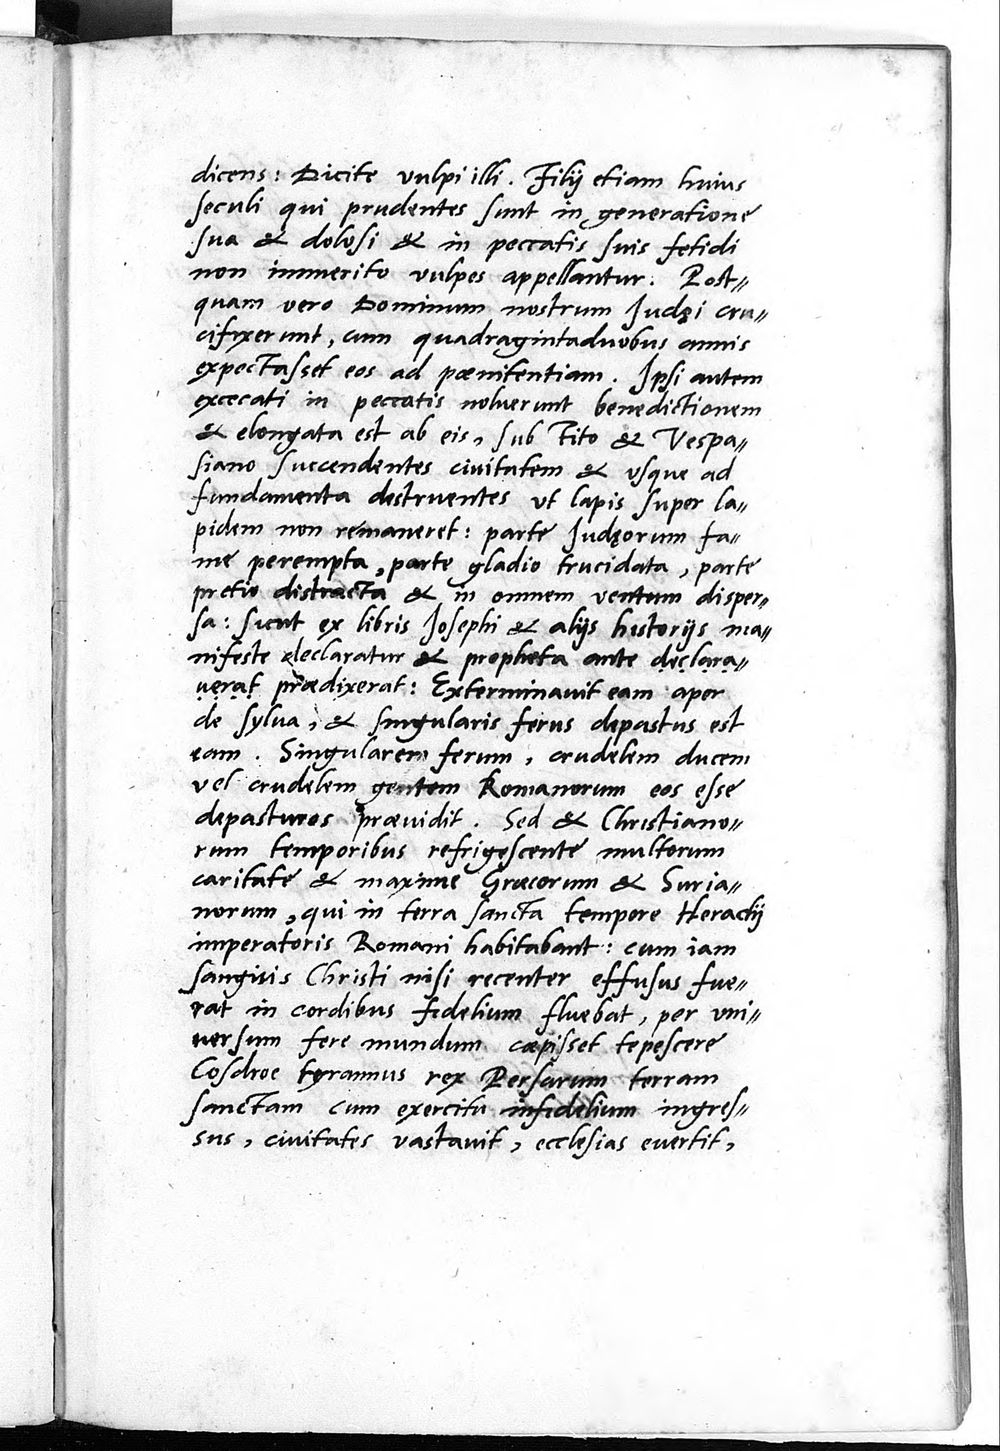 dicens: Dicite vulpi illi. Filij etiam huius
seculi qui prudentes sunt in generatione
sua & dolosi & in peccatis suis fetidi
non immerito vulpes appellantur. Post=
quam vero Dominum nostrum Judęi cru=
cifixerunt, cum quadragintaduobus annis
expectasset eos ad pœnitentiam. Ipsi autem
excecati in peccatis noluerunt benedictionem
& elongata est ab eis, sub Tito & Vespa=
siano succendentes civitatem & vsque ad
fundamenta destruentes vt lapis super la=
pidem non remaneret: parte Judęorum fa=
me perempta, parte gladio trucidata, parte
pretio distracta & in omnem ventum disper=
sa: sicut ex libris Josephi & alijs historijs ma=
nifeste declaratur & propheta ante declara=
uerat prædixerat: Exterminauit eam aper
de sylua, & singularis ferus depastus est
eam. Singularem ferum, crudelem ducem
vel crudelem gentem Romanorum eos esse
depasturos præuidit. Sed & Christiano=
rum temporibus refrigescente multorum
caritate & maxime Græcorum & Suria=
norum, qui in terra sancta tempore Heraclij
imperatoris Romani habitabant: cum iam
sanguis Christi nisi recenter effusus fue=
rat in cordibus fidelium fluebat, per vni=
uersum fere mundum cœpisset tepescere
Cosdroe tyrannus rex Persarum terram
sanctam cum exercitu infidelium ingres=
sus, ciuitates vastauit, ecclesias euertit,